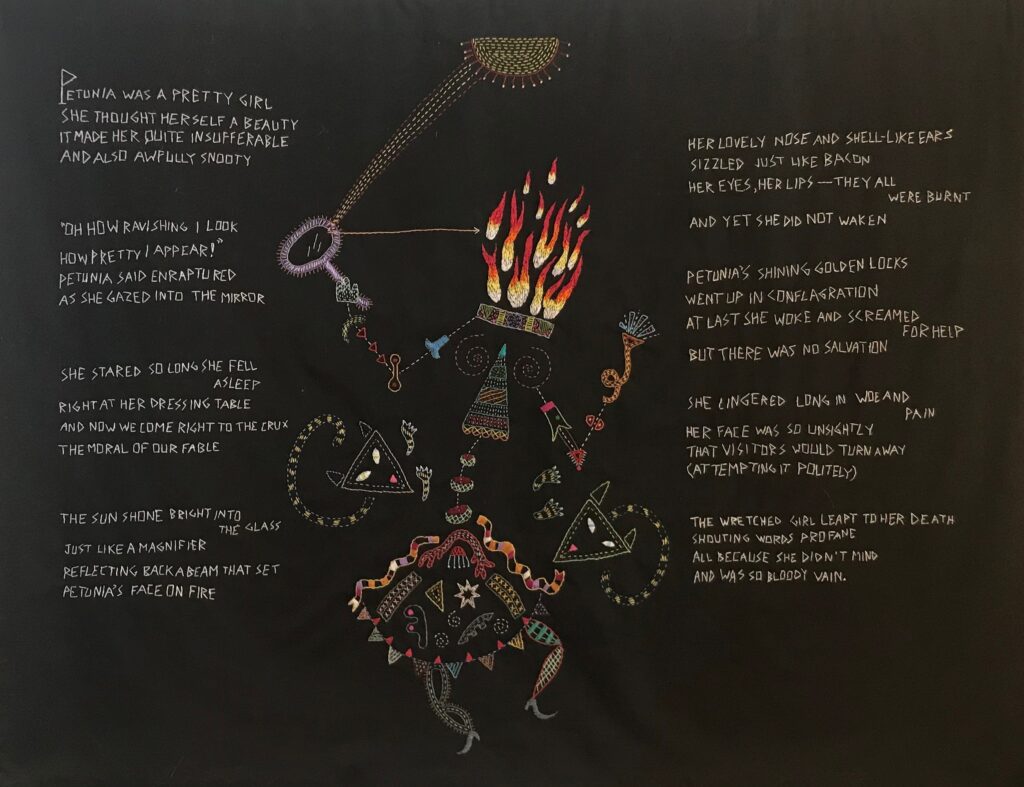 PETUNIA WAS A PRETTY GIRL
SHE THOUGHT HERSELF A BEAUTY
IT MADE HER QUITE INSUFFERABLE
AND ALSO AWFULLY SNOOTY
"OH HOW RAVISHING I LOOK
HOW PRETTY I APPEAR!"
PETUNIA SAID ENRAPTURED
AS SHE GAZED INTO THE MIRROR
SHE STARED SO LONG SHE FELL
ASLEEP
RIGHT AT HER DRESSING TABLE
AND NOW WE COME RIGHT TO THE CRUX
THE MORAL OF OUR FABLE
THE SUN SHONE BRIGHT INTO
THE GLASS
JUST LIKE A MAGNIFIER
REFLECTING BACK A BEAM THAT SET
PETUNIA'S FACE ON FIRE
HER LOVELY NOSE AND SHELL-LIKE EARS
SIZZLED JUST LIKE BACON
HER EYES, HER LIPS — THEY ALL
WERE BURNT
AND YET SHE DID NOT WAKEN
PETUNIA'S SHINING GOLDEN LOCKS
WENT UP IN CONFLAGRATION
AT LAST SHE WOKE AND SCREAMED
FOR HELP
BUT THERE WAS NO SALVATION
SHE LINGERED LONG IN WOE AND
PAIN
HER FACE WAS SO UNSIGHTLY
THAT VISITORS WOULD TURN AWAY
(ATTEMPTING IT POLITELY)
THE WRETCHED GIRL LEAPT TO HER DEATH
SHOUTING WORDS PROFANE
ALL BECAUSE SHE DIDN'T MIND
AND WAS SO BLOODY VAIN.